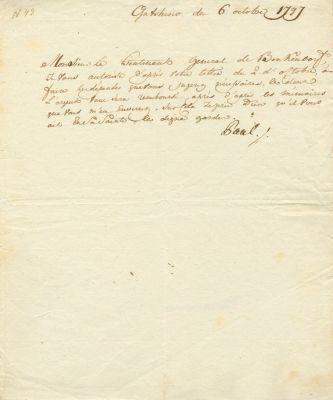 N 43
Gatchino du 6 octobre 1797
Monsieur le Lieutenant General de Benkendorf
Je vous autorise d'après votre lettre du 2 d'octobre, à
faire les depenses que vous jugerez necessaires, et dont
l'argent vous sera remboursé après d'après les mémoires
que vous m'en enverrez. Sur cela je prie Dieu qu'il vous
ait en sa Sainte et digne garde.
Paul